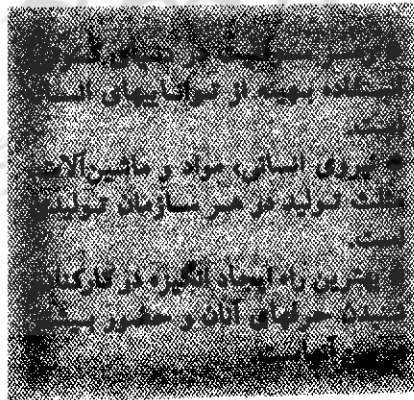 در دنیای
استفاده بهینه از تواناییهای
است.
نیروی انسانی، مواد و ماشین‌آلات
مثلث تولید در هر سازمان تولیدی
است.
بهترین راه ایجاد انگیزه در کارکنان
شنیدن حرفهای آنان و حضور
آنهاست.